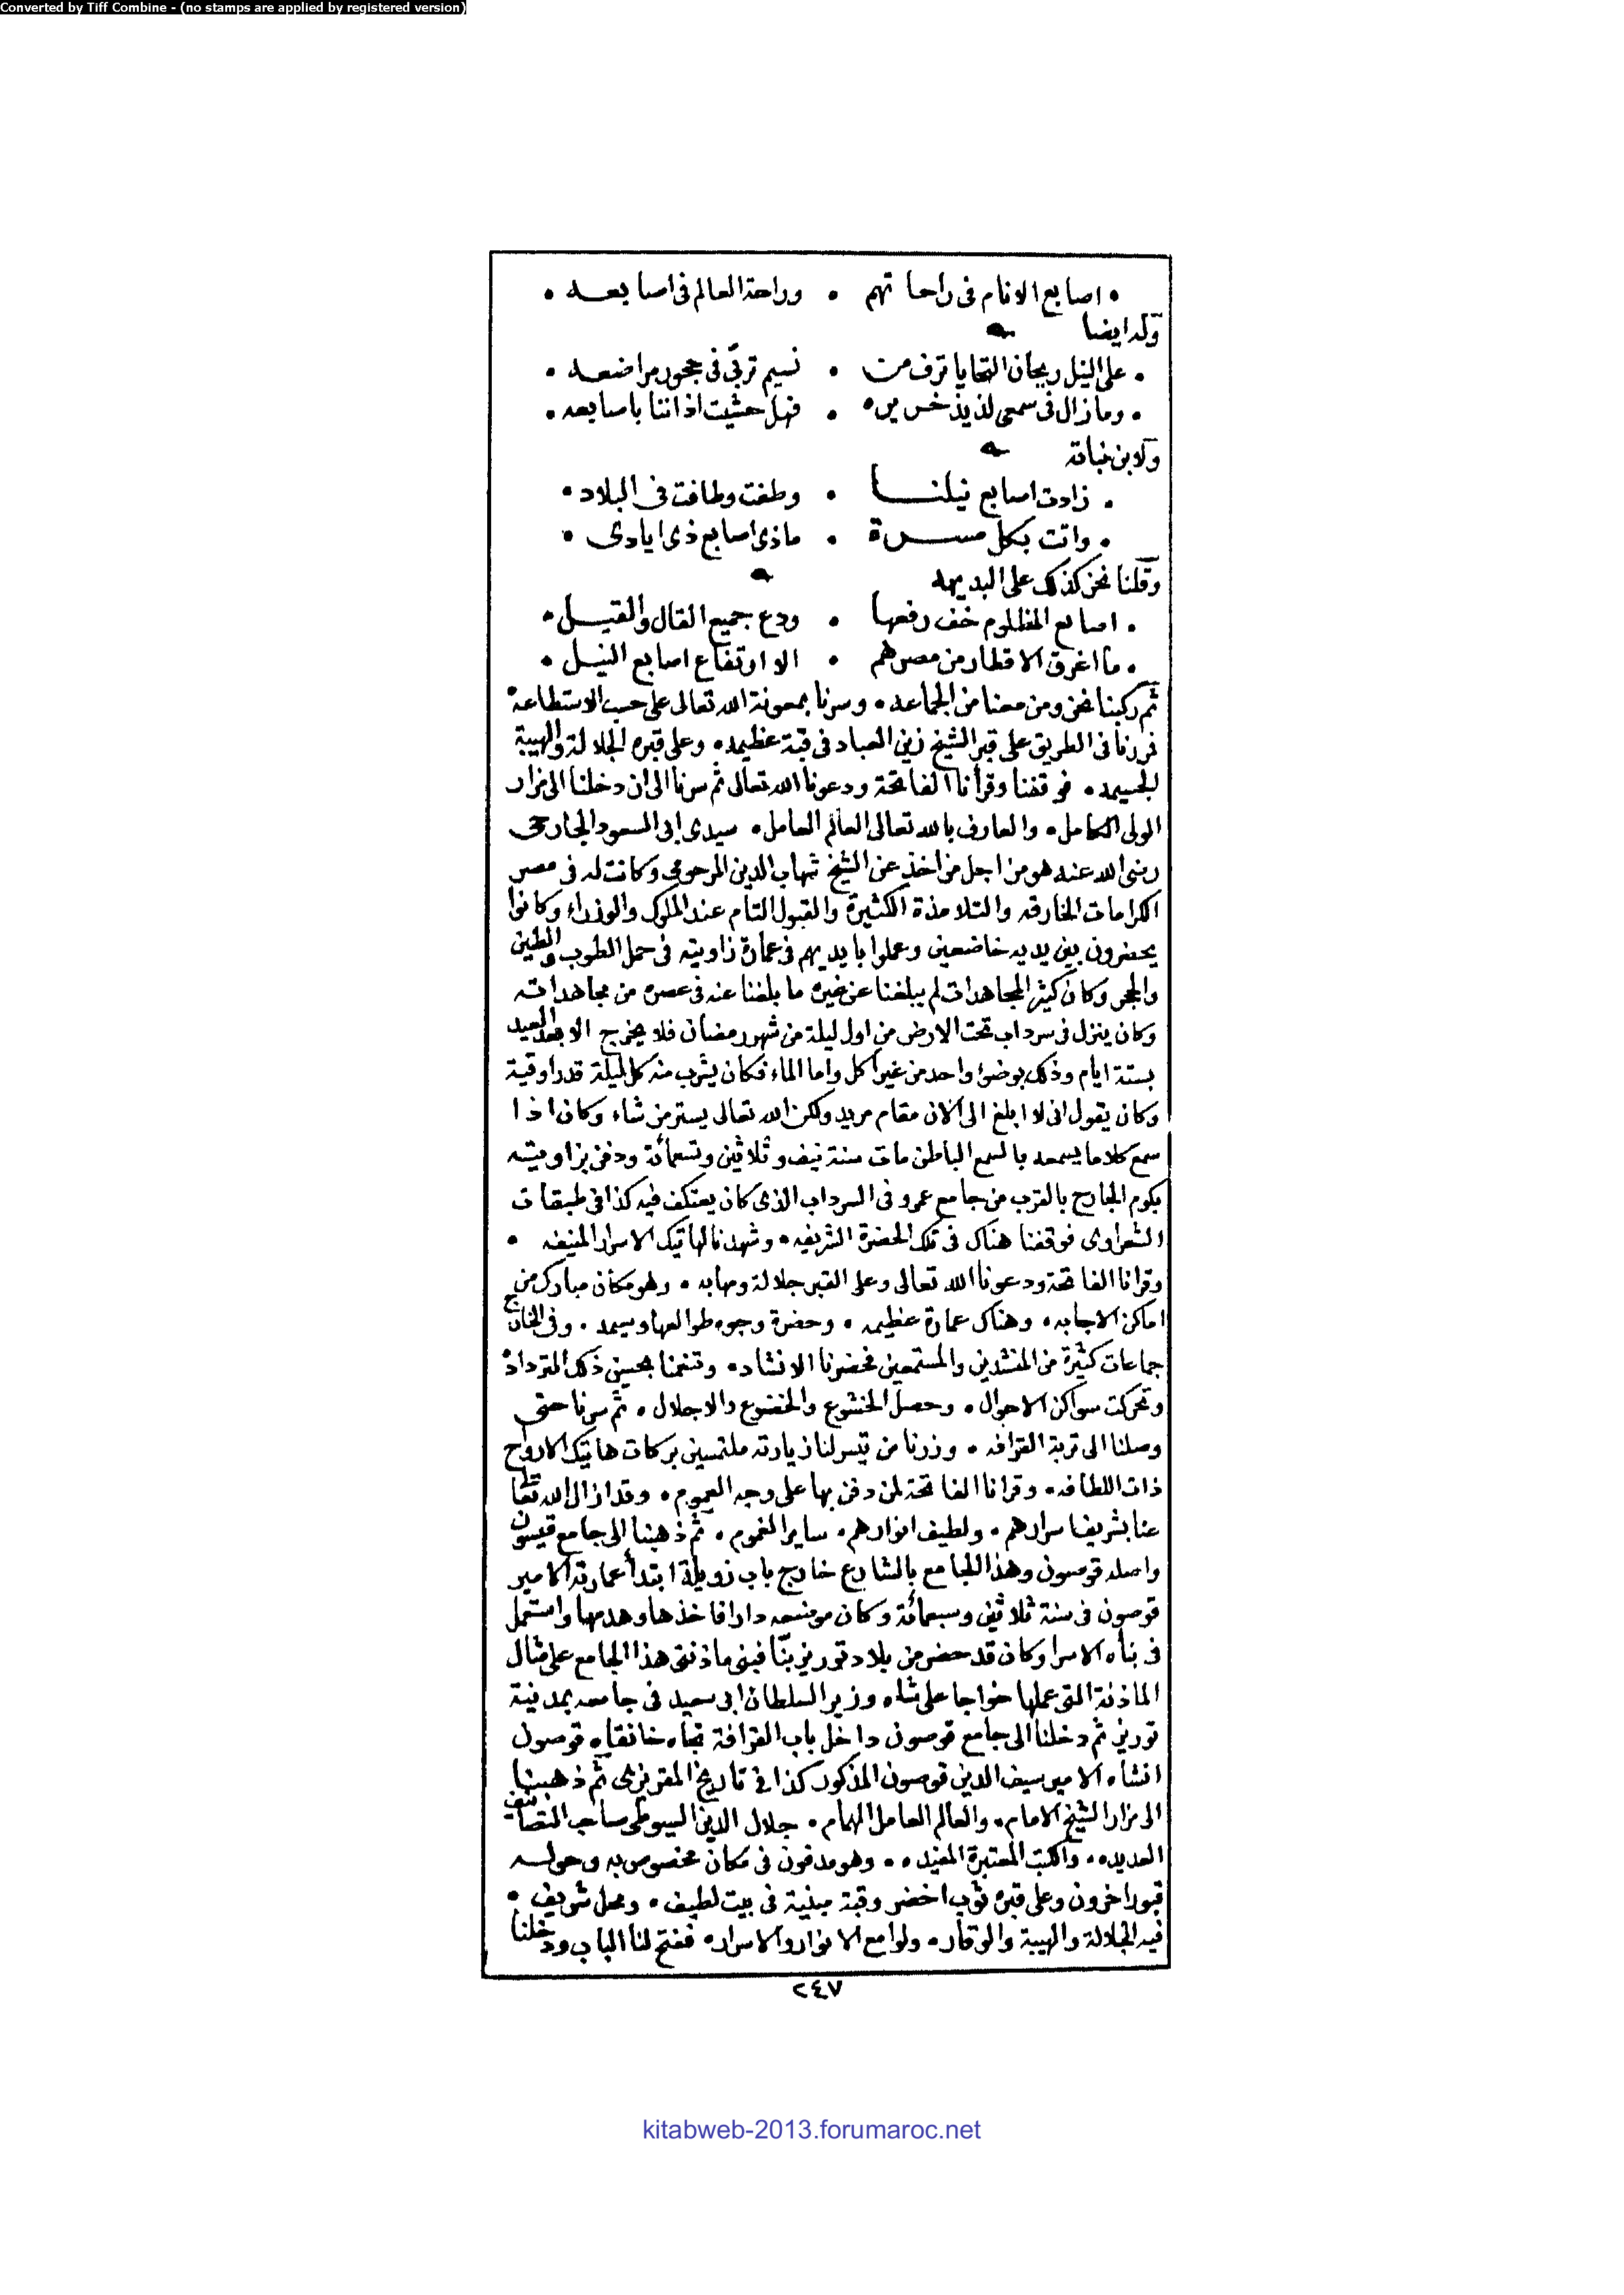 Converted by Tiff Combine - (no stamps are applied by registered version)
• اصابع الانام فى راحاتهم • وراحة العالم فى اصابعه •
وله ايضا
• على النيل ريحان التحايا ترف من • نسيم تربّى فى حجور مراضعه •
• وما زال فى سمعى لذيذ خريره • فهل حشيت اذاننا باصابعه •
ولابن نباتة
• زادت اصابع نيلنا • وطغت وطافت فى البلاد •
• واتت بكل مسرة • ماذى اصابع ذى ايادى •
وقلنا نحن كذلك على البديهه
• اصابع المظلوم خف رفعها • ودع جميع القال والقيل •
• ما اغرق الاقطار من مصرهم • الا ارتفاع اصابع النيل •
ثم ركبنا نحن ومن معنا من الجماعه • وسرنا بمعونة الله تعالى على حسب الاستطاعة
فمررنا فى الطريق على قبر الشيخ زين العباد فى قبة عظيمه • وعلى قبره الجلالة والهيبة
الجسيمه • فوقفنا وقرأنا الفاتحة ودعونا الله تعالى ثم سرنا الى ان دخلنا الى مزار
الولى الكامل • والعارف بالله تعالى العالم العامل • سيدى ابى السعود الجارحى
رضى الله عنه هو من اجل من اخذ عن الشيخ شهاب الدين المرحومى وكانت له فى مصر
الكرامات الخارقه والتلامذة الكثيرة والقبول التام عند الملوك والوزراء وكانوا
يحضرون بين يديه خاضعين وعملوا بايديهم فى عمارة زاويته فى حمل الطوب والطين
والحجر وكان كثير المجاهدات لم يبلغنا عن غيره ما بلغنا عنه فى عصره من مجاهداته
وكان ينزل فى سرداب تحت الارض من اول ليلة من شهر رمضان فلا يخرج الا بعد العيد
بستة ايام وذلك بوضوء واحد من غير اكل واما الماء فكان يشرب منه كل ليلة قدر اوقية
وكان يقول انى لا ابلغ الى الان مقام مريد ولكن الله تعالى يستر من شاء وكان اذا
سمع كلاما يسمعه بالسمع الباطن مات سنة نيف وثلاثين وتسعمائة ودفن بزاويته
بكوم الجارح بالقرب من جامع عمرو فى السرداب الذى كان يعتكف فيه كذا فى طبقات
الشعراوى فوقفنا هناك فى تلك الحضرة الشريفه • وشهدنا هاتيك الاسرار المنيفه •
وقرانا الفاتحة ودعونا الله تعالى وعلى القبر جلالة ومهابه • وهو مكان مبارك من
اماكن الاجابه • وهناك عمارة عظيمه • وحضرة وجوه طوالعها وسيمه • وفى الخارج
جماعات كثيرة من المنشدين والمستمعين فحضرنا الانشاد • وتنغمنا بحسن ذلك الترداد
وتحركت سواكن الاحوال • وحصل الخشوع والخضوع والاجلال • ثم سرنا حتى
وصلنا الى تربة القرافه • وزرنا من تيسر لنا زيارته ملتمسين بركات هاتيك الارواح
ذات اللطافه • وقرانا الفاتحة لمن دفن بها على وجه العموم • وقد ازال الله تعالى
عنا بشريف اسرارهم • ولطيف انوارهم • ساير الغموم • ثم ذهبنا الى جامع قيسون
واصله قوصون وهذا الجامع بالشارع خارج باب زويلة ابتدأ عمارته الامير
قوصون فى سنة ثلاثين وسبعمائة وكان موضعه دارا فاخذها وهدمها واستعمل
فى بناه الاسرا وكان قد حضر من بلاد توريز بنّا فبنى ماذنتى هذا الجامع على مثال
الماذنة التى عملها خواجا على شاه وزير السلطان ابى سعيد فى جامعه بمدينة
توريز ثم دخلنا الى جامع قوصون داخل باب القرافة تجاه خانقاه قوصون
انشاه الامير سيف الدين قوصون المذكور كذا فى تاريخ المقريزى ثم ذهبنا
الى مزار الشيخ الامام • والعالم العامل الهمام • جلال الدين السيوطى صاحب التصانيف
العديده • والكتب المعتبرة المفيده • وهو مدفون فى مكان مخصوص به وحوله
قبور اخرون وعلى قبره ثوب اخضر وقبة مبنية فى بيت لطيف • ومحل شريف •
فيه الجلالة والهيبة والوقار • ولوامع الانوار والاسرار • ففتح لنا الباب ودخلنا
٢٤٧
kitabweb-2013.forumaroc.net